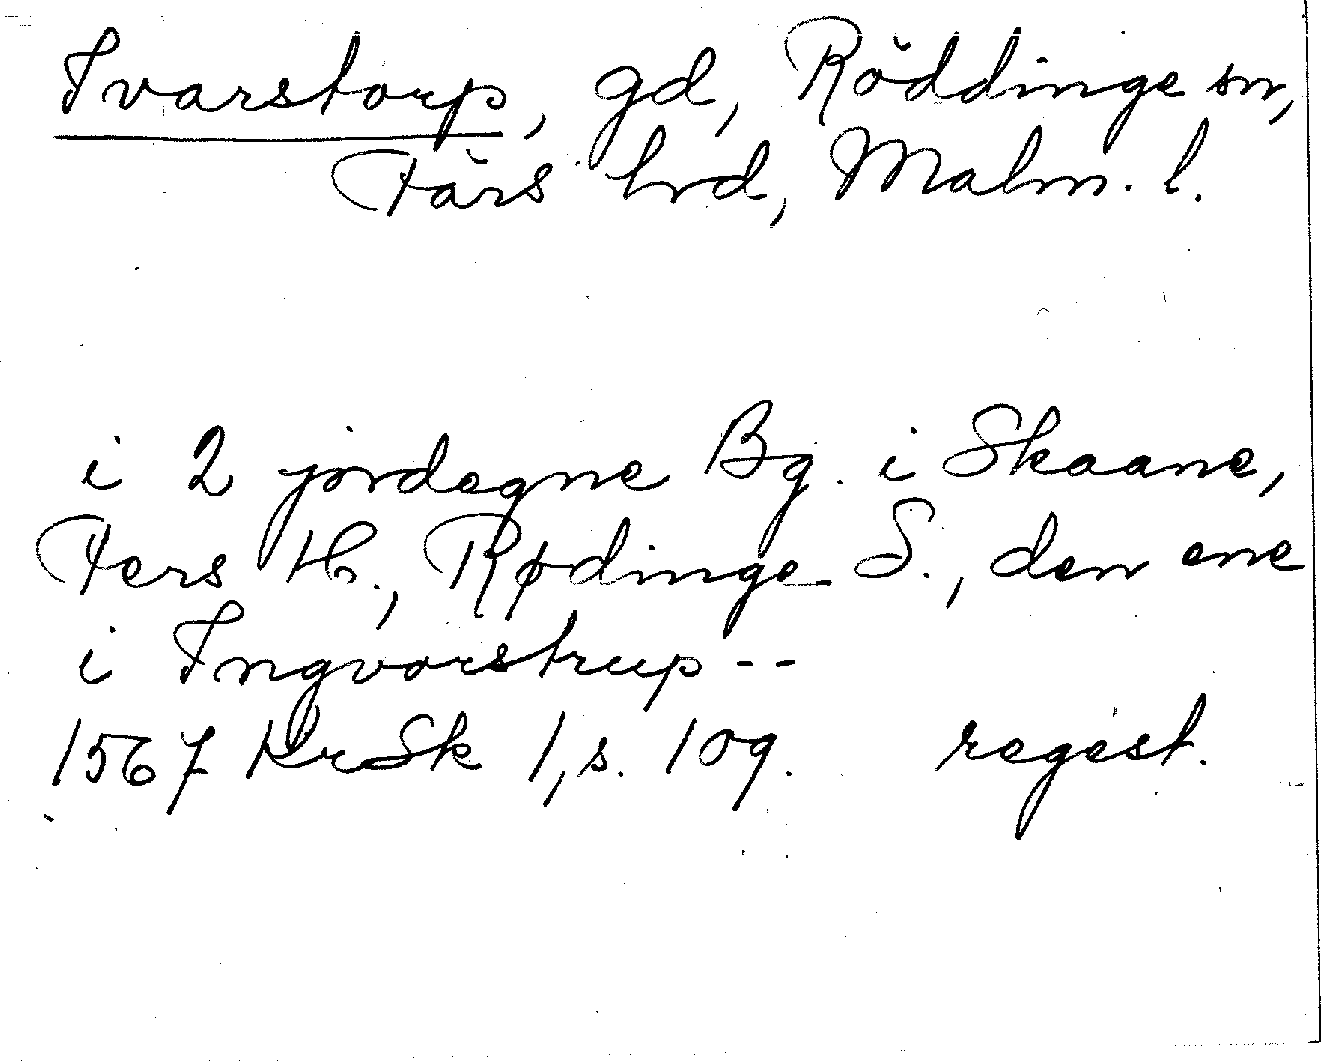 Ivarstorp, gd, Röddinge sn,
Färs hrd, Malm. l.
i 2 jordegne Bg. i Skaane,
Fers H., Rødinge S., den ene
i Ingvorstrup--
1567 KrSk 1, s. 109. regest.